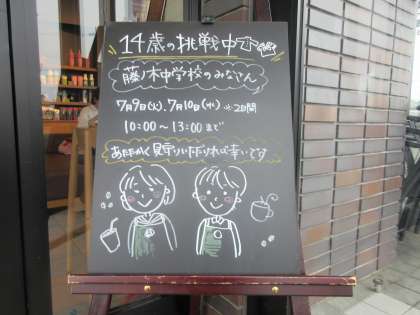 14歳の挑戦中
藤ノ木中学校のみなさん
7月9日(火).7月10日(水) ※2日間
10:00〜13:00まで
あたたかく見守りいただければ幸いです